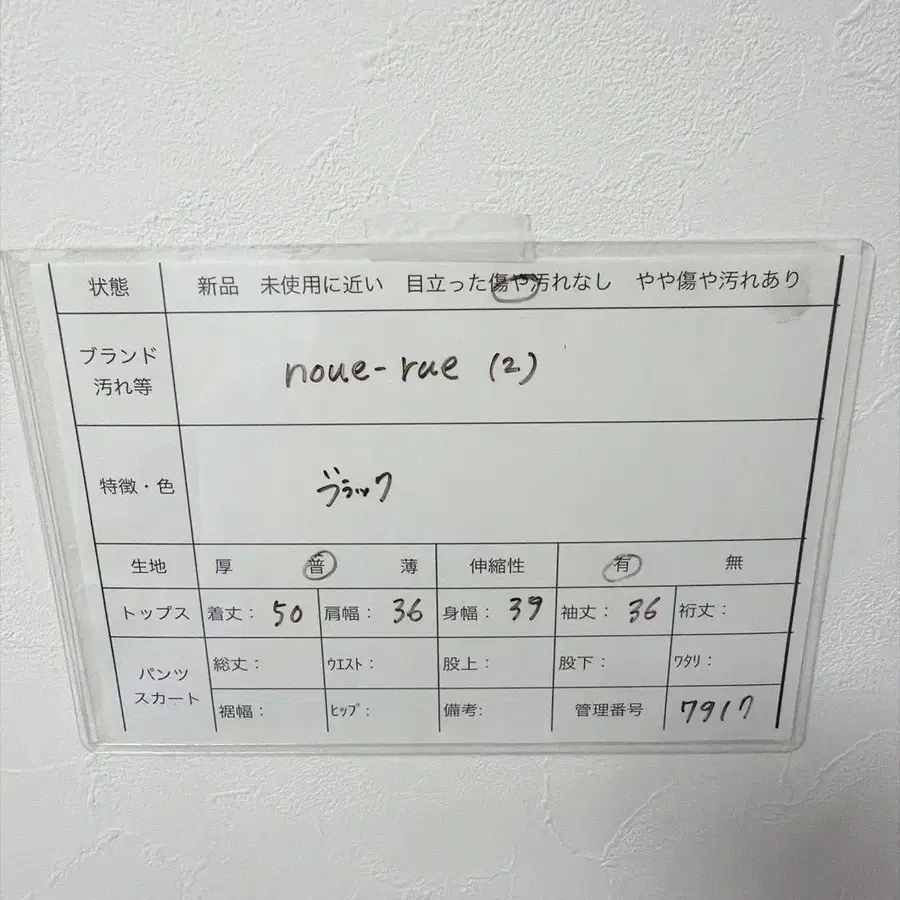 状態 新品 未使用に近い 目立った傷や汚れなし やや傷や汚れあり
ブランド
汚れ等
noue-rue (2)
特徴・色 ブラック
生地 厚 普 薄 伸縮性 有 無
トップス 着丈: 50 肩幅: 36 身幅: 39 袖丈: 36 裄丈:
パンツ
スカート
総丈: ｳｴｽﾄ: 股上: 股下: ﾜﾀﾘ:
裾幅: ﾋｯﾌﾟ: 備考: 管理番号 7917